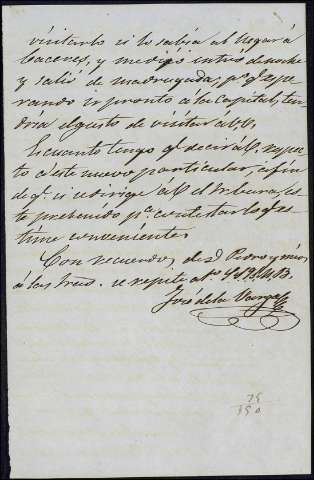 visitarlo si lo sabia al llegar á
Caceres, y me dijo entró de noche
y salió de madrugada, p.r q.e espe-
rando ir pronto á la capital, ten-
dria el gusto de visitar á V.E.
Es cuanto tengo q.e decir á V. respec-
to á este nuevo particular, á fin
de q.e si se dirige á V. el Tribunal, es-
té prebenido p.a contestar lo q.e es-
time conveniente.
Con recuerdos de
á las tres. se repite at.o S.S.Q.B.S.M.
José de la Varga
75
150